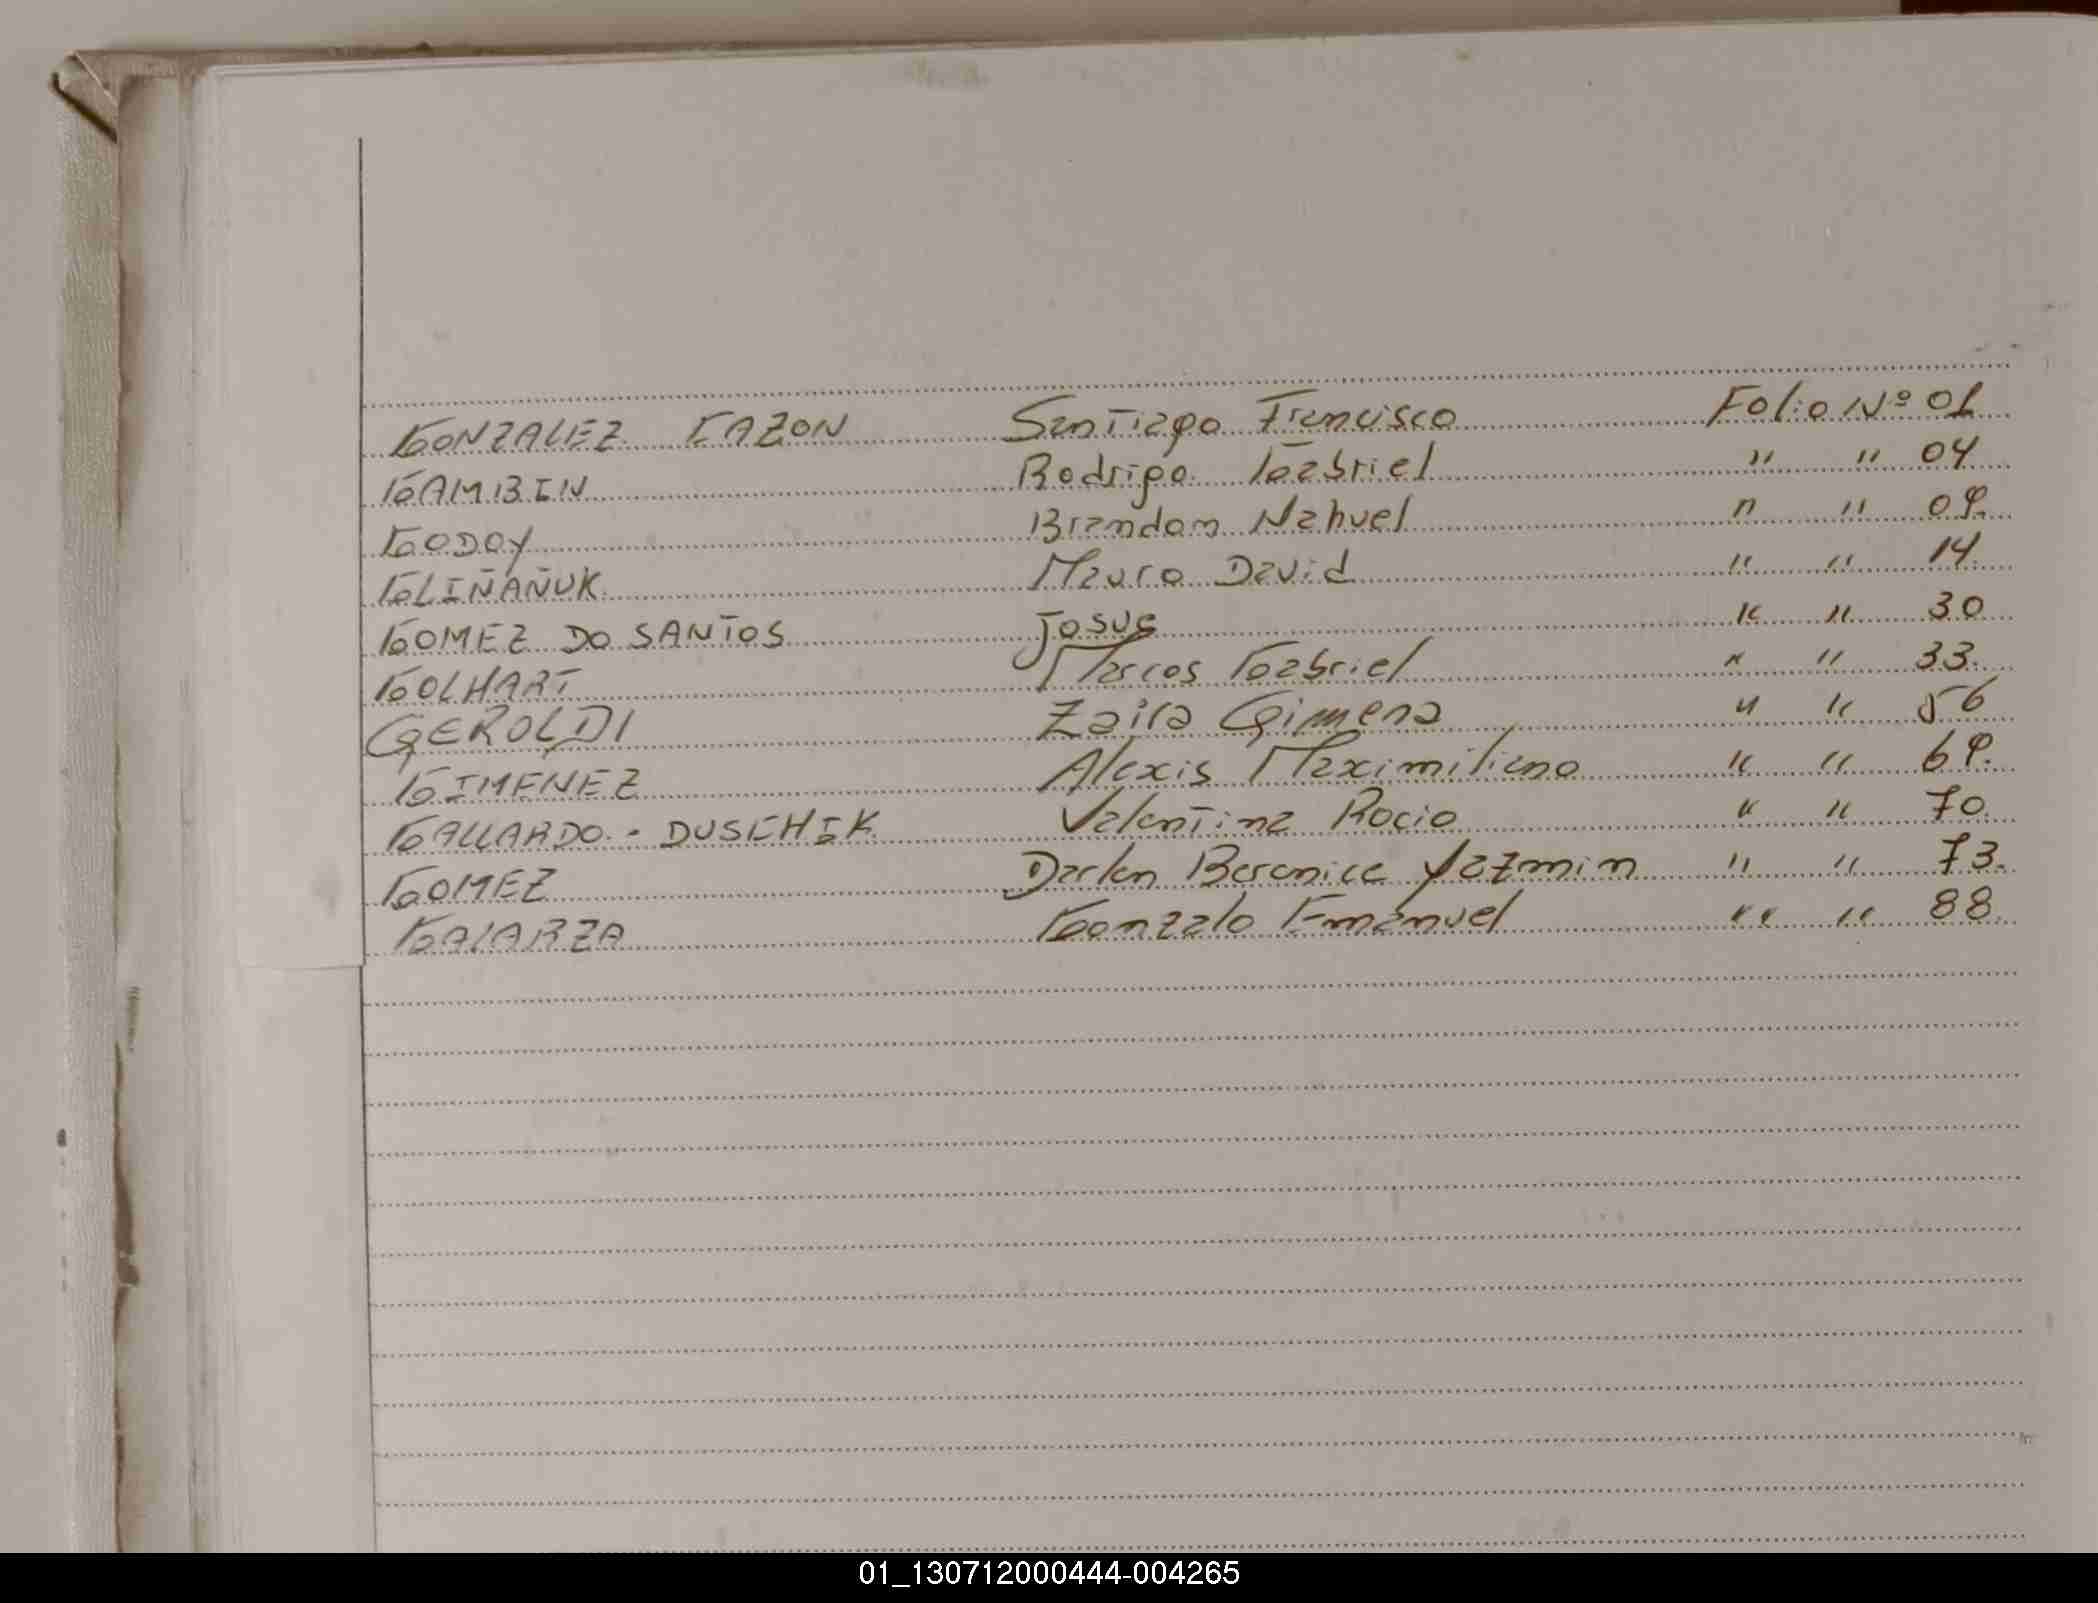 GONZALEZ CAZON Santiago Francisco Folio Nº 01
GAMBIN Rodrigo Gabriel " " 04
GODOY Brandom Nahuel " " 09.
GLIÑAÑUK Mauro David " " 14.
GOMEZ DO SANTOS Josue " " 30
GOLHART Marcos Gabriel " " 33.
GEROLDI Zaira Gimena " " 56
GIMENEZ Alexis Maximiliano " " 69.
GALLARDO - DUSCHIK Valentina Rocio " " 70.
GOMEZ Darlen Berenice Yazmin " " 73.
GALARZA Gonzalo Emanuel " " 88.
01_130712000444-004265